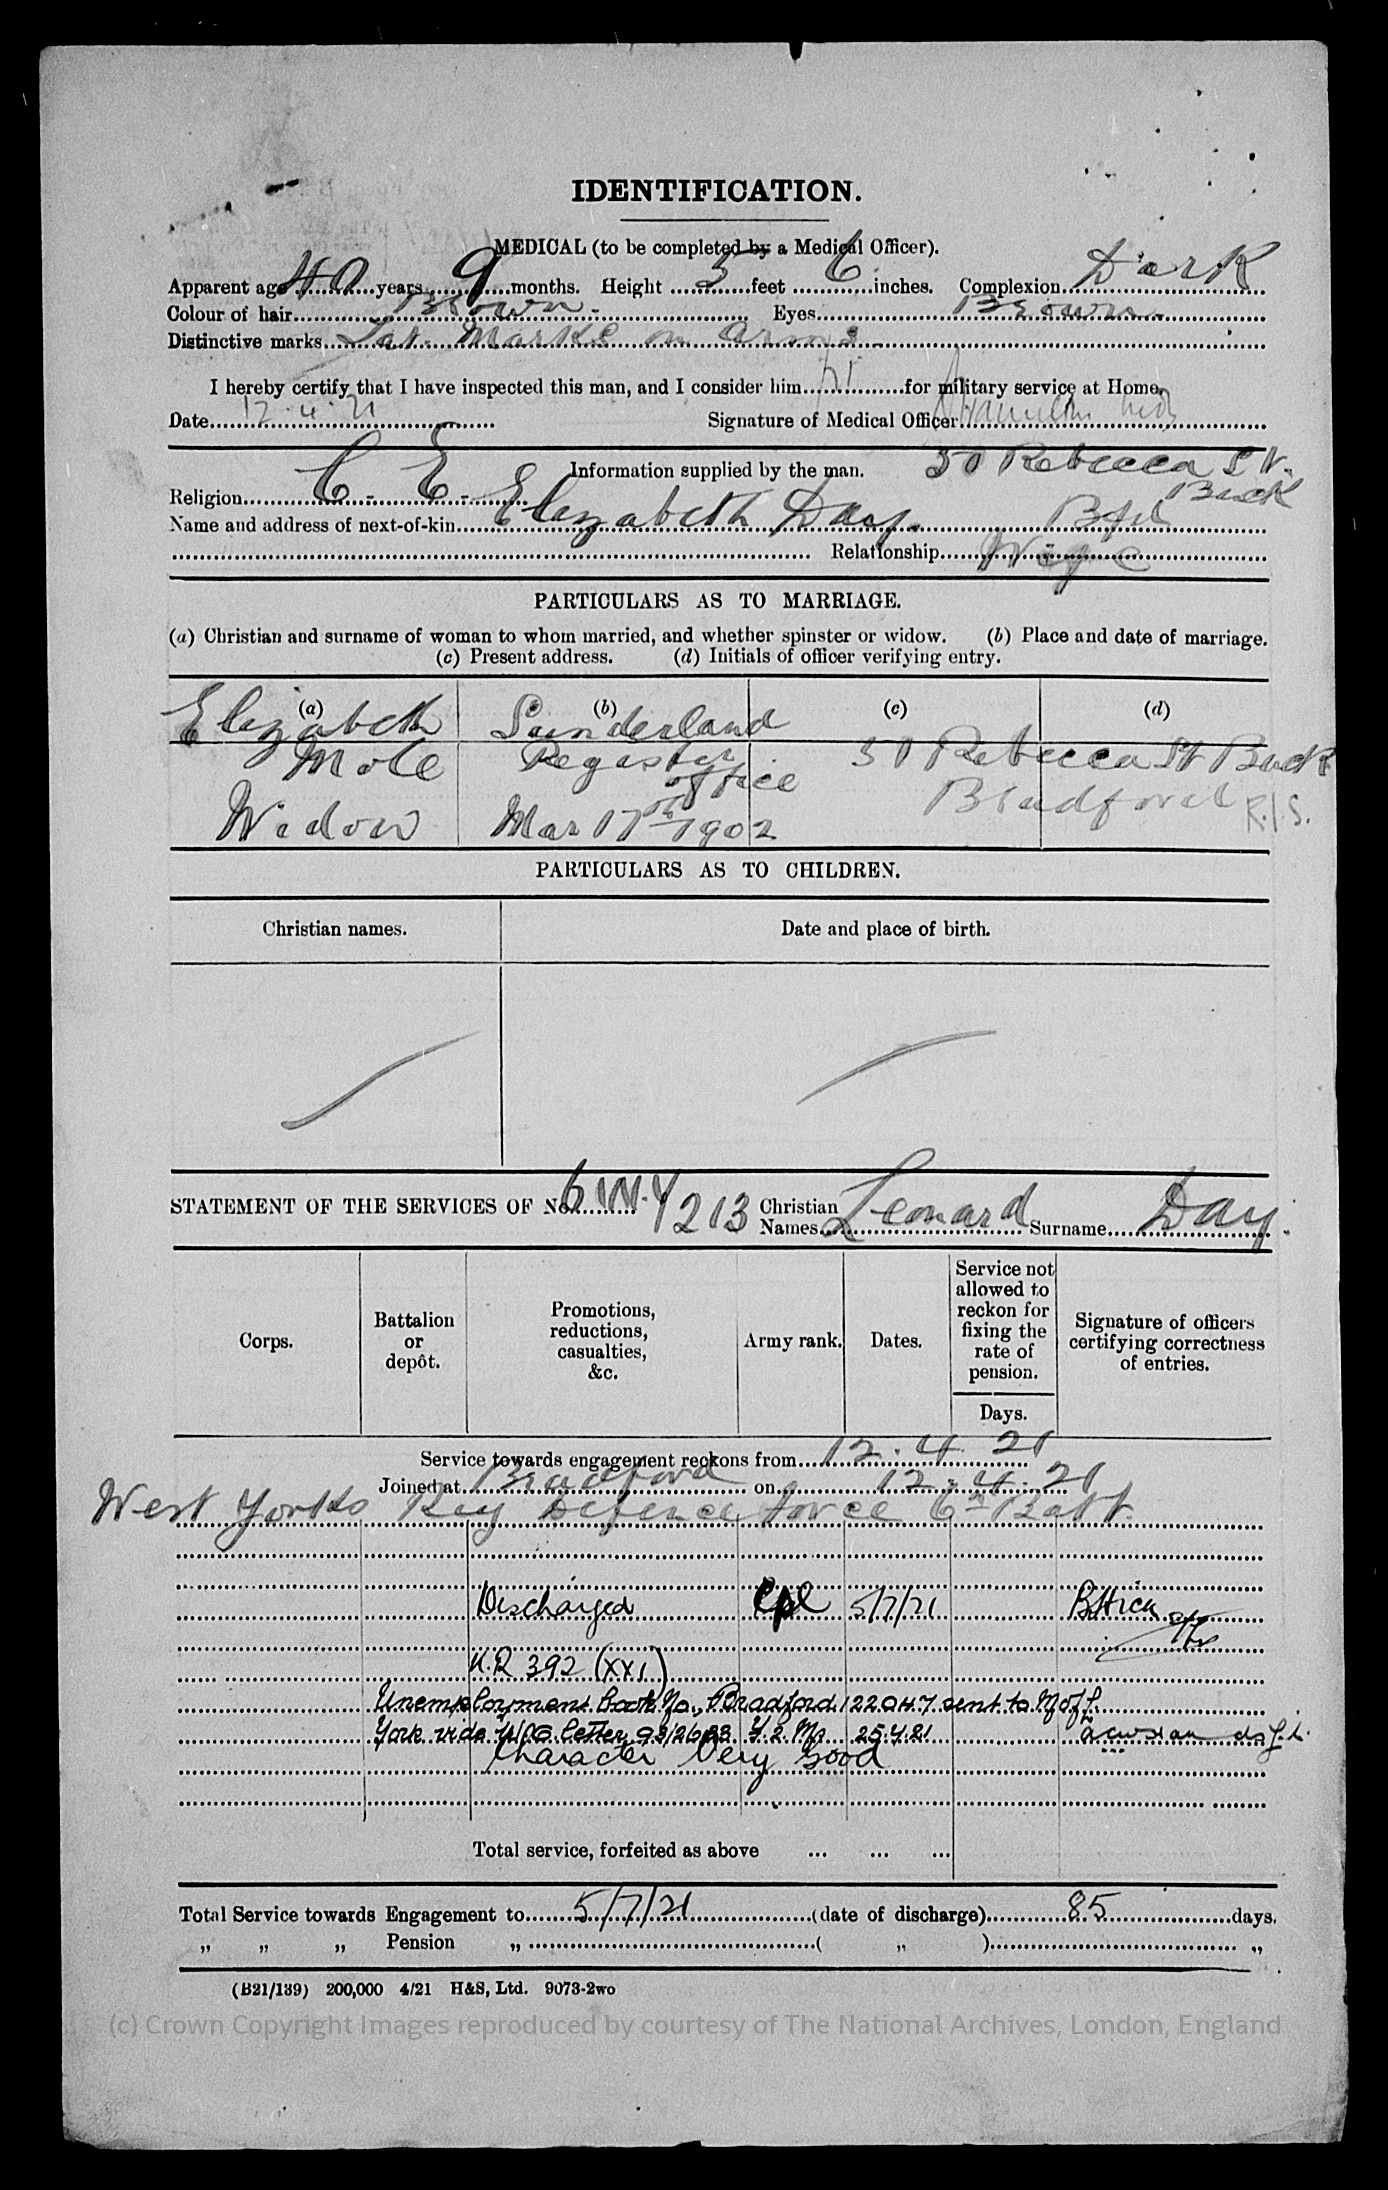 IDENTIFICATION.
MEDICAL (to be completed by a Medical Officer).
Apparent age 40 years 9 months. Height 5 feet 6 inches. Complexion Dark
Colour of hair Brown. Eyes Brown.
Distinctive marks Tat. Marks on arms.
I hereby certify that I have inspected this man, and I consider him fit for military service at Home.
Date 12.4.21 Signature of Medical Officer
Information supplied by the man. 50 Rebecca St.
Religion C. E. Back
Name and address of next-of-kin Elizabeth Day. Bfd
Relationship Wife
PARTICULARS AS TO MARRIAGE.
(a) Christian and surname of woman to whom married, and whether spinster or widow. (b) Place and date of marriage.
(c) Present address. (d) Initials of officer verifying entry.
(a) (b) (c) (d)
Elizabeth Sunderland
Mole Register 50 Rebecca St Back
office Bradford R.J.S.
Widow Mar 17th 1902
PARTICULARS AS TO CHILDREN.
Christian names. Date and place of birth.
STATEMENT OF THE SERVICES OF No. 6 W.Y 1213 Christian Names Leonard Surname Day.
Corps. Battalion or depôt. Promotions, reductions, casualties, &c. Army rank. Dates. Service not allowed to reckon for fixing the rate of pension. Signature of officers certifying correctness of entries.
Days.
Service towards engagement reckons from 12.4.21
Joined at Bradford on 12.4.21
West Yorks Reg Defence force 6th Batt.
Discharged Cpl 5/7/21
K.R 392 (XXI)
Unemployment book No. Bradford 122047 sent to M of L.
York vide letter 93/2633 25.4.21
Character Very Good
Total service, forfeited as above ... ... ...
Total Service towards Engagement to 5/7/21 (date of discharge) 85 days.
„ „ „ Pension „ ( „ ) „
(B21/139) 200,000 4/21 H&S, Ltd. 9073-2wo
(c) Crown Copyright Images reproduced by courtesy of The National Archives, London, England